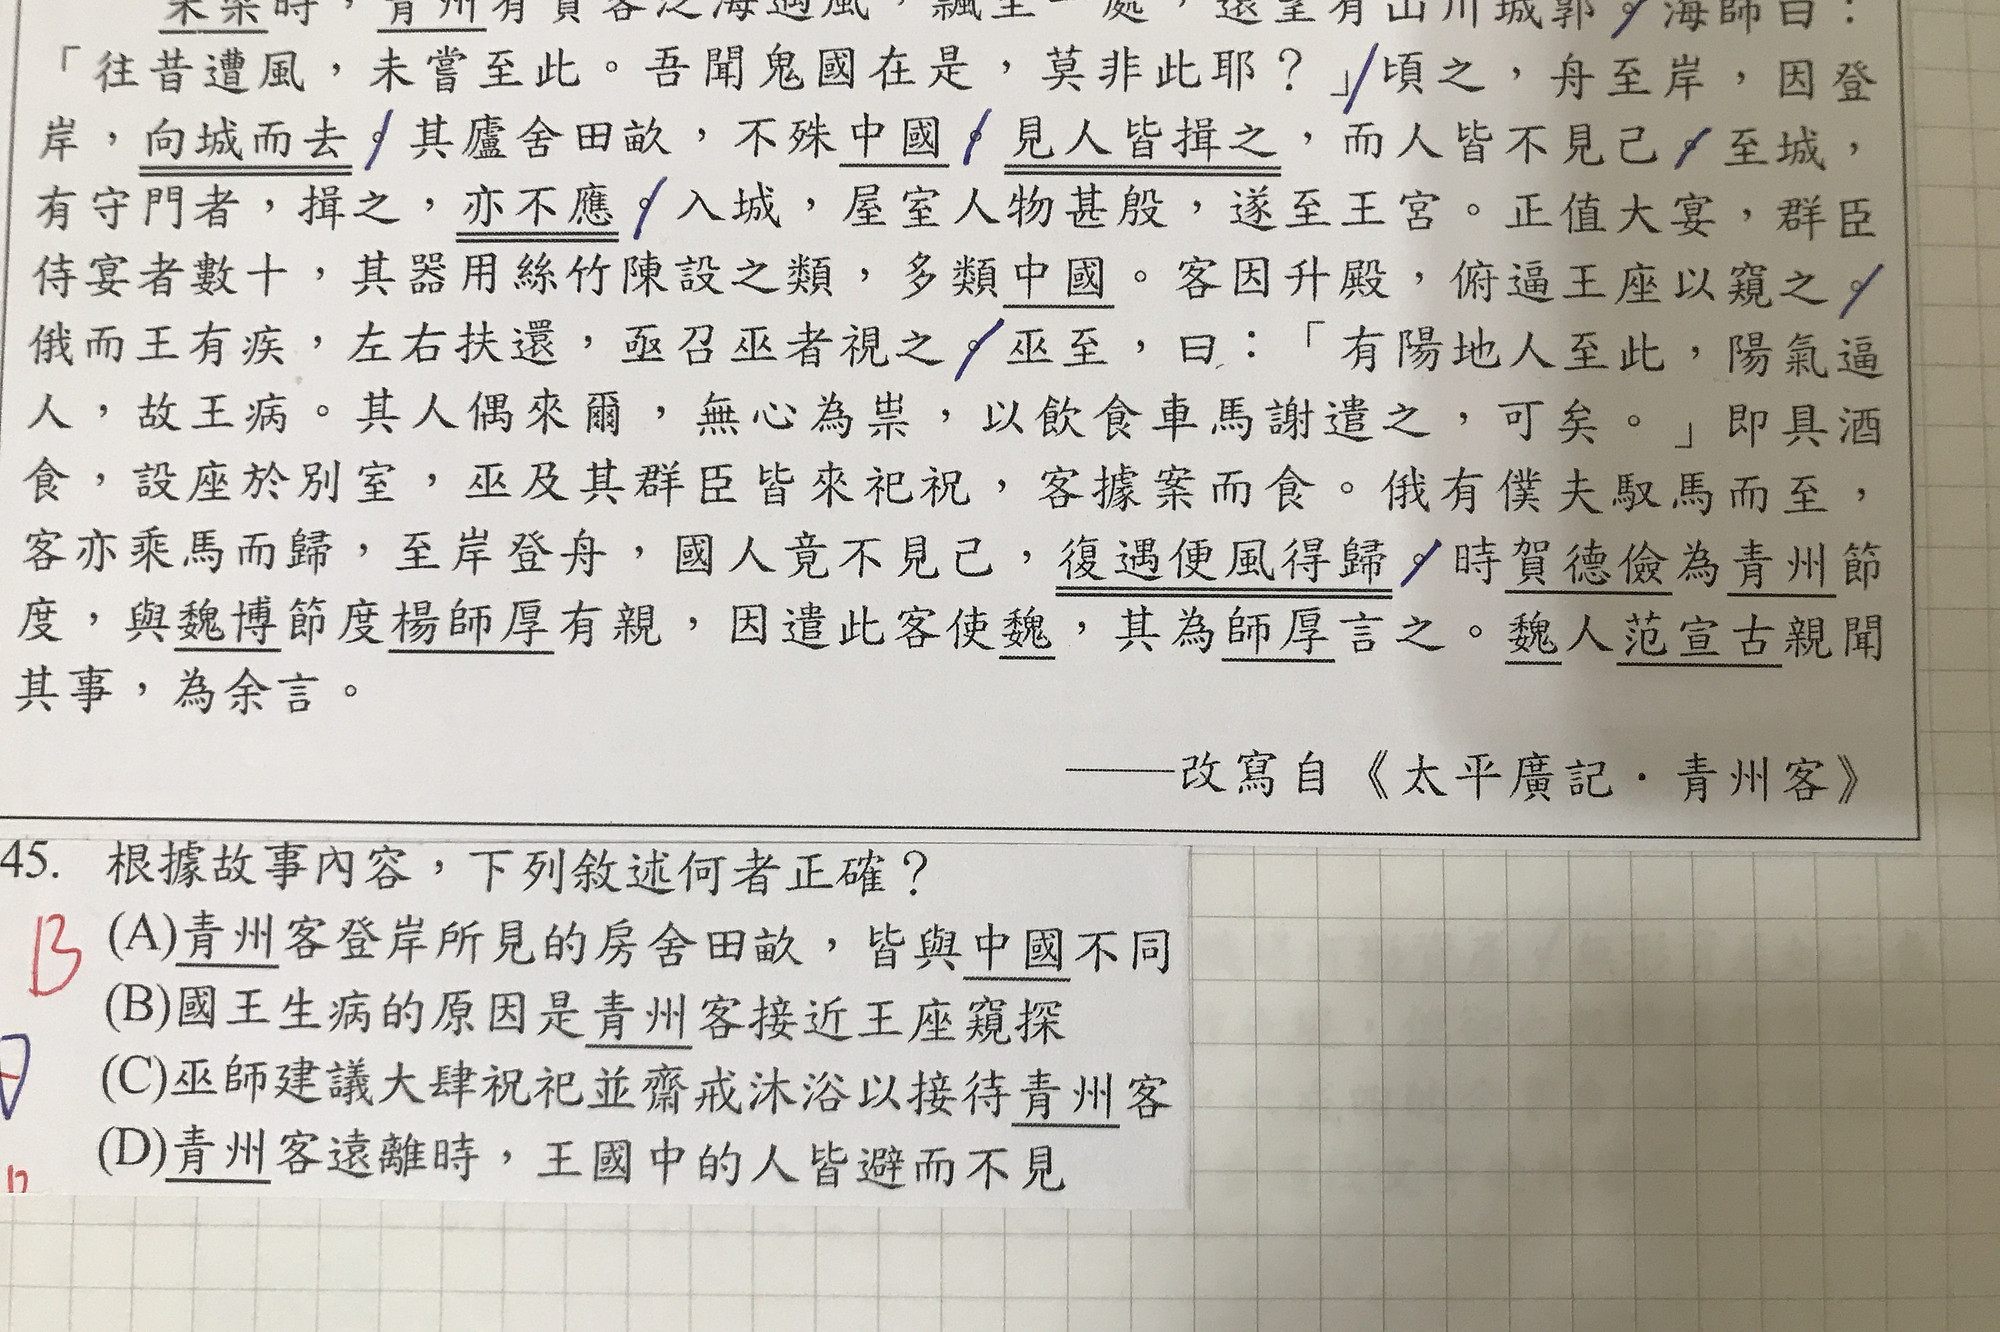 朱梁時，青州有賈客泛海遇風，飄至一處，遠望有山川城郭。海師曰：
「往昔遭風，未嘗至此。吾聞鬼國在是，莫非此耶？」頃之，舟至岸，因登
岸，向城而去。其廬舍田畝，不殊中國。見人皆揖之，而人皆不見己。至城，
有守門者，揖之，亦不應。入城，屋室人物甚殷，遂至王宮。正值大宴，群臣
侍宴者數十，其器用絲竹陳設之類，多類中國。客因升殿，俯逼王座以窺之。
俄而王有疾，左右扶還，亟召巫者視之。巫至，曰：「有陽地人至此，陽氣逼
人，故王病。其人偶來爾，無心為祟，以飲食車馬謝遣之，可矣。」即具酒
食，設座於別室，巫及其群臣皆來祀祝，客據案而食。俄有僕夫馭馬而至，
客亦乘馬而歸，至岸登舟，國人竟不見己，復遇便風得歸。時賀德儉為青州節
度，與魏博節度楊師厚有親，因遣此客使魏，其為師厚言之。魏人范宣古親聞
其事，為余言。
——改寫自《太平廣記·青州客》
45. 根據故事內容，下列敘述何者正確？
B
(A)青州客登岸所見的房舍田畝，皆與中國不同
(B)國王生病的原因是青州客接近王座窺探
(C)巫師建議大肆祝祀並齋戒沐浴以接待青州客
(D)青州客遠離時，王國中的人皆避而不見